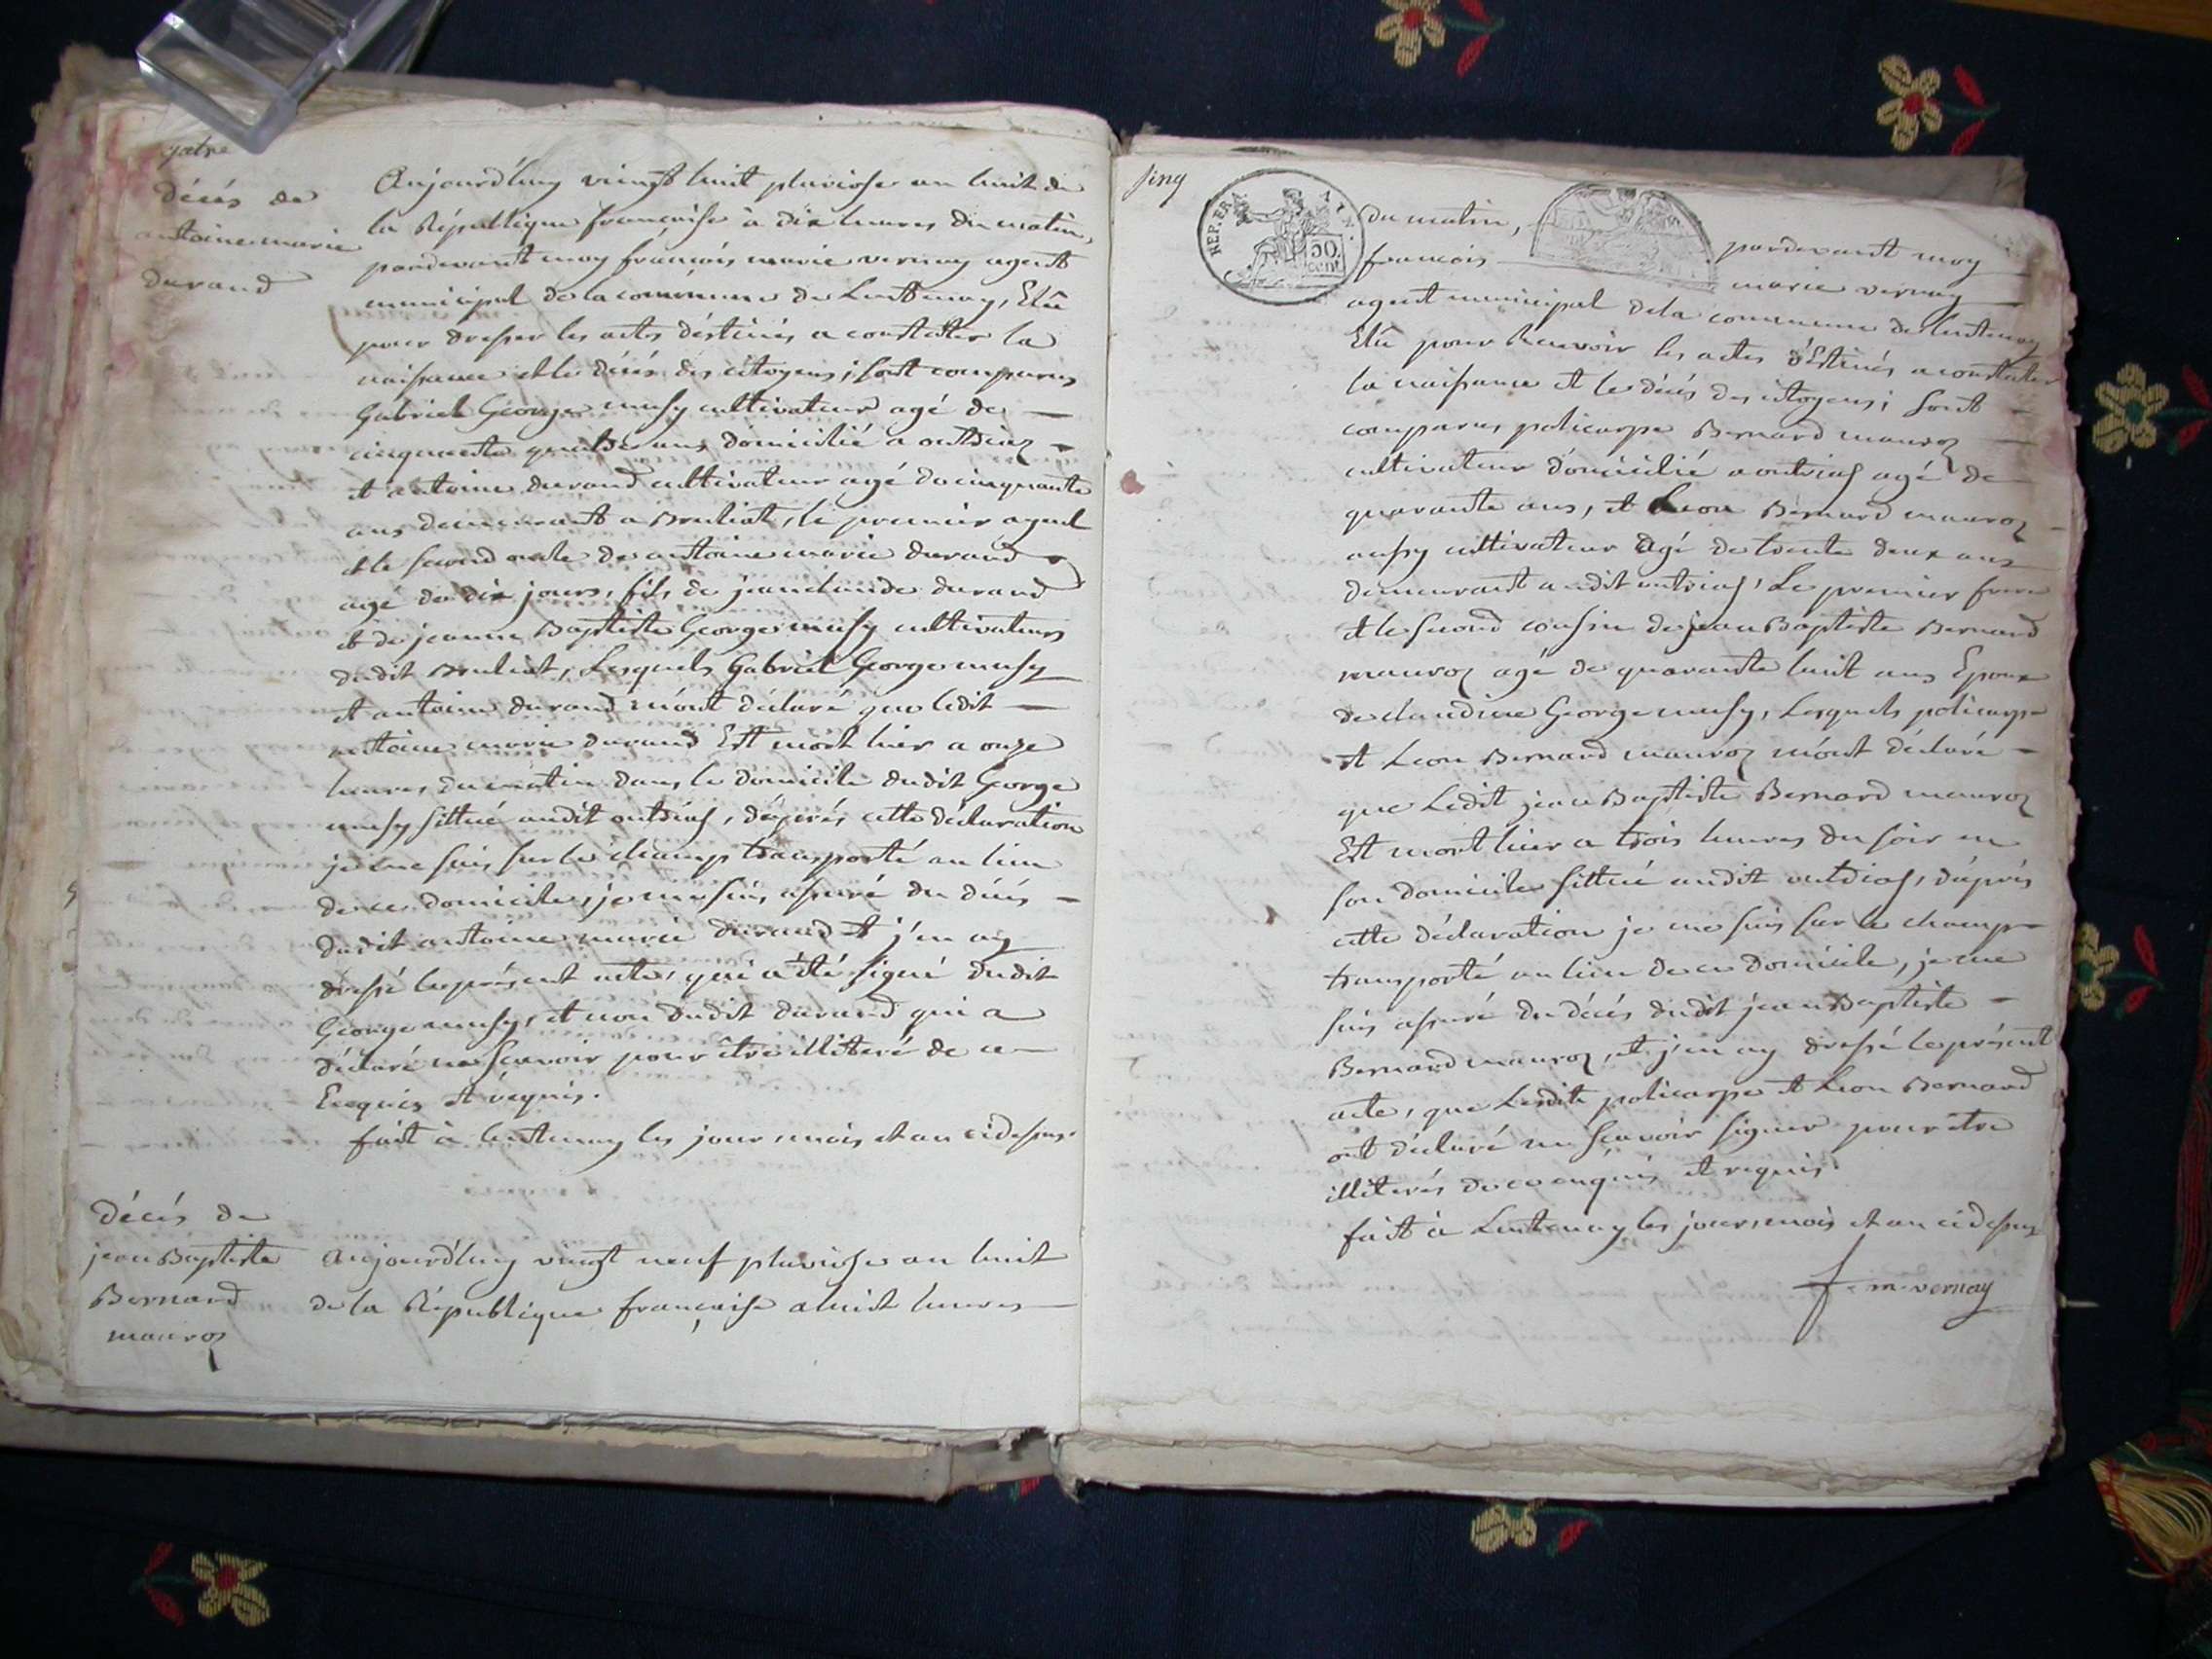 décés de
antoine marie
durand
Aujourd'huy vingt huit pluviose an huit de
la République françoise à dix heures du matin,
pardevant moy françois marie vernay agent
municipal de la commune de Lentenay, Elû
pour dresser les actes déstinés a constater la
naissance et le décés des citoyens; sont comparus
Gabriel George musy cultivateur agé de
cinquante quatre ans domicilié a outriaz
et antoine durand cultivateur agé de cinquante
ans demeurant a Bruliat, le premier ayeul
et le second oncle de antoine marie durand
agé de dix jours, fils de jean claude durand
et de jeanne Baptiste George musy cultivateurs
dudit Bruliat, Lesquels Gabriel George musy
et antoine durand m'ont déclaré que ledit
antoine marie durand Est mort hier a onze
heures du matin dans le domicile dudit George
musy sittué audit outrias, d'après cette déclaration
je me suis sur le champ transporté au lieu
de ce domicile, je me suis assuré du décés
dudit antoine marie durand et j'en ay
dressé le présent acte, qui a été signé dudit
George musy, et non dudit durand qui a
déclaré ne scavoir pour être illiteré de ce
Enquis et réquis.
fait à Lentenay les jour, mois et an cidessus.
décés de
jean Baptiste
Bernard
mauroz
Aujourd'huy vingt neuf pluviose an huit
de la République françoise a huit heures
sinq
REP. FRA
50
cent
du matin, pardevant moy
françois marie vernay
agent municipal de la commune de lentenay
Elû pour recevoir les actes déstinés a constater
la naissance et le décés des citoyens; sont
comparus policarpe Bernard mauroz
cultivateur domicilié a outrias agé de
quarante ans, et Leon Bernard mauroz
aussy cultivateur agé de trente deux ans
demeurant audit outrias, Le premier frere
et le second cousin de jean Baptiste Bernard
mauroz agé de quarante huit ans Epoux
de claudine George musy, Lesquels policarpe
et Leon Bernard mauroz m'ont déclaré
que Ledit jean Baptiste Bernard mauroz
Est mort hier a trois heures du soir en
son domicile sittué audit outrias, d'après
cette déclaration je me suis sur le champ
transporté au lieu de ce domicile, je me
suis assuré du décés dudit jean Baptiste
Bernard mauroz, et j'en ay dressé le présent
acte, que Lesdits policarpe et Leon Bernard
ont déclaré ne scavoir signer pour être
illiterés de ce enquis et requis.
fait à Lentenay les jour, mois et an cidessus
f. m. vernay